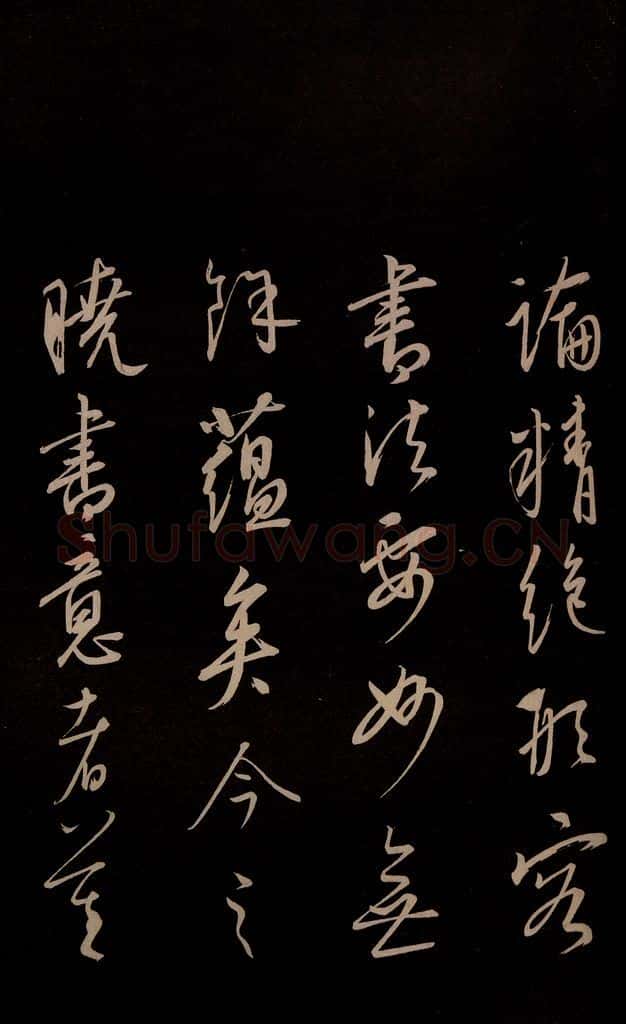 論精絶形容
書法要妙無
餘蘊矣今之
曉書意者
Shufawang.CN